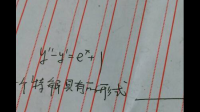 y''-y'=eˣ+1
个特解具有的形式